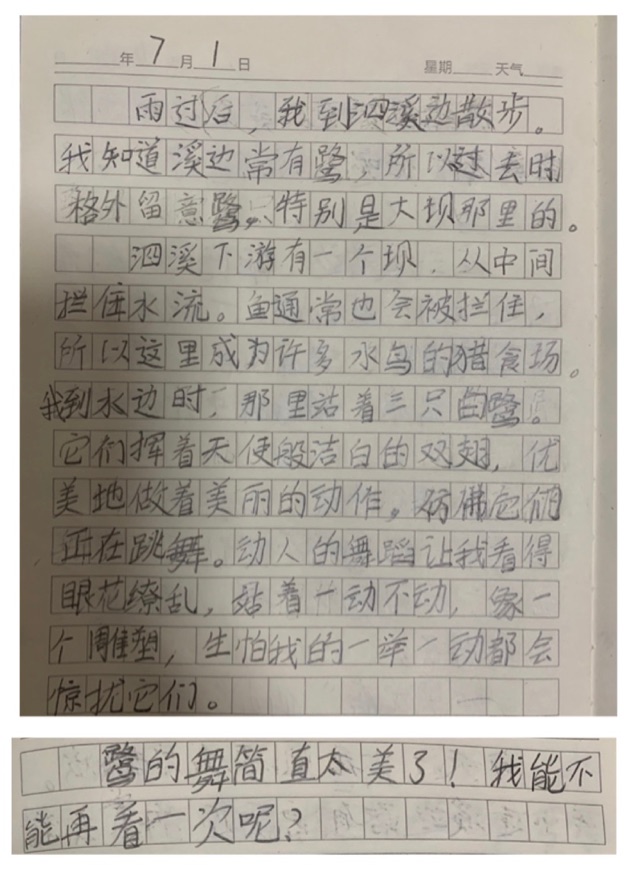 年 7 月 1 日 星期 天气
雨过后，我到泗溪边散步。
我知道溪边常有鹭，所以过去时
格外留意鹭，特别是大坝那里的。
泗溪下游有一个坝，从中间
拦住水流。鱼通常也会被拦住，
所以这里成为许多水鸟的猎食场。
我到水边时，那里站着三只白鹭。
它们挥着天使般洁白的双翅，优
美地做着美丽的动作。仿佛它们
正在跳舞。动人的舞蹈让我看得
眼花缭乱，站着一动不动，像一
个雕塑，生怕我的一举一动都会
惊扰它们。
鹭的舞简直太美了！我能不
能再看一次呢？